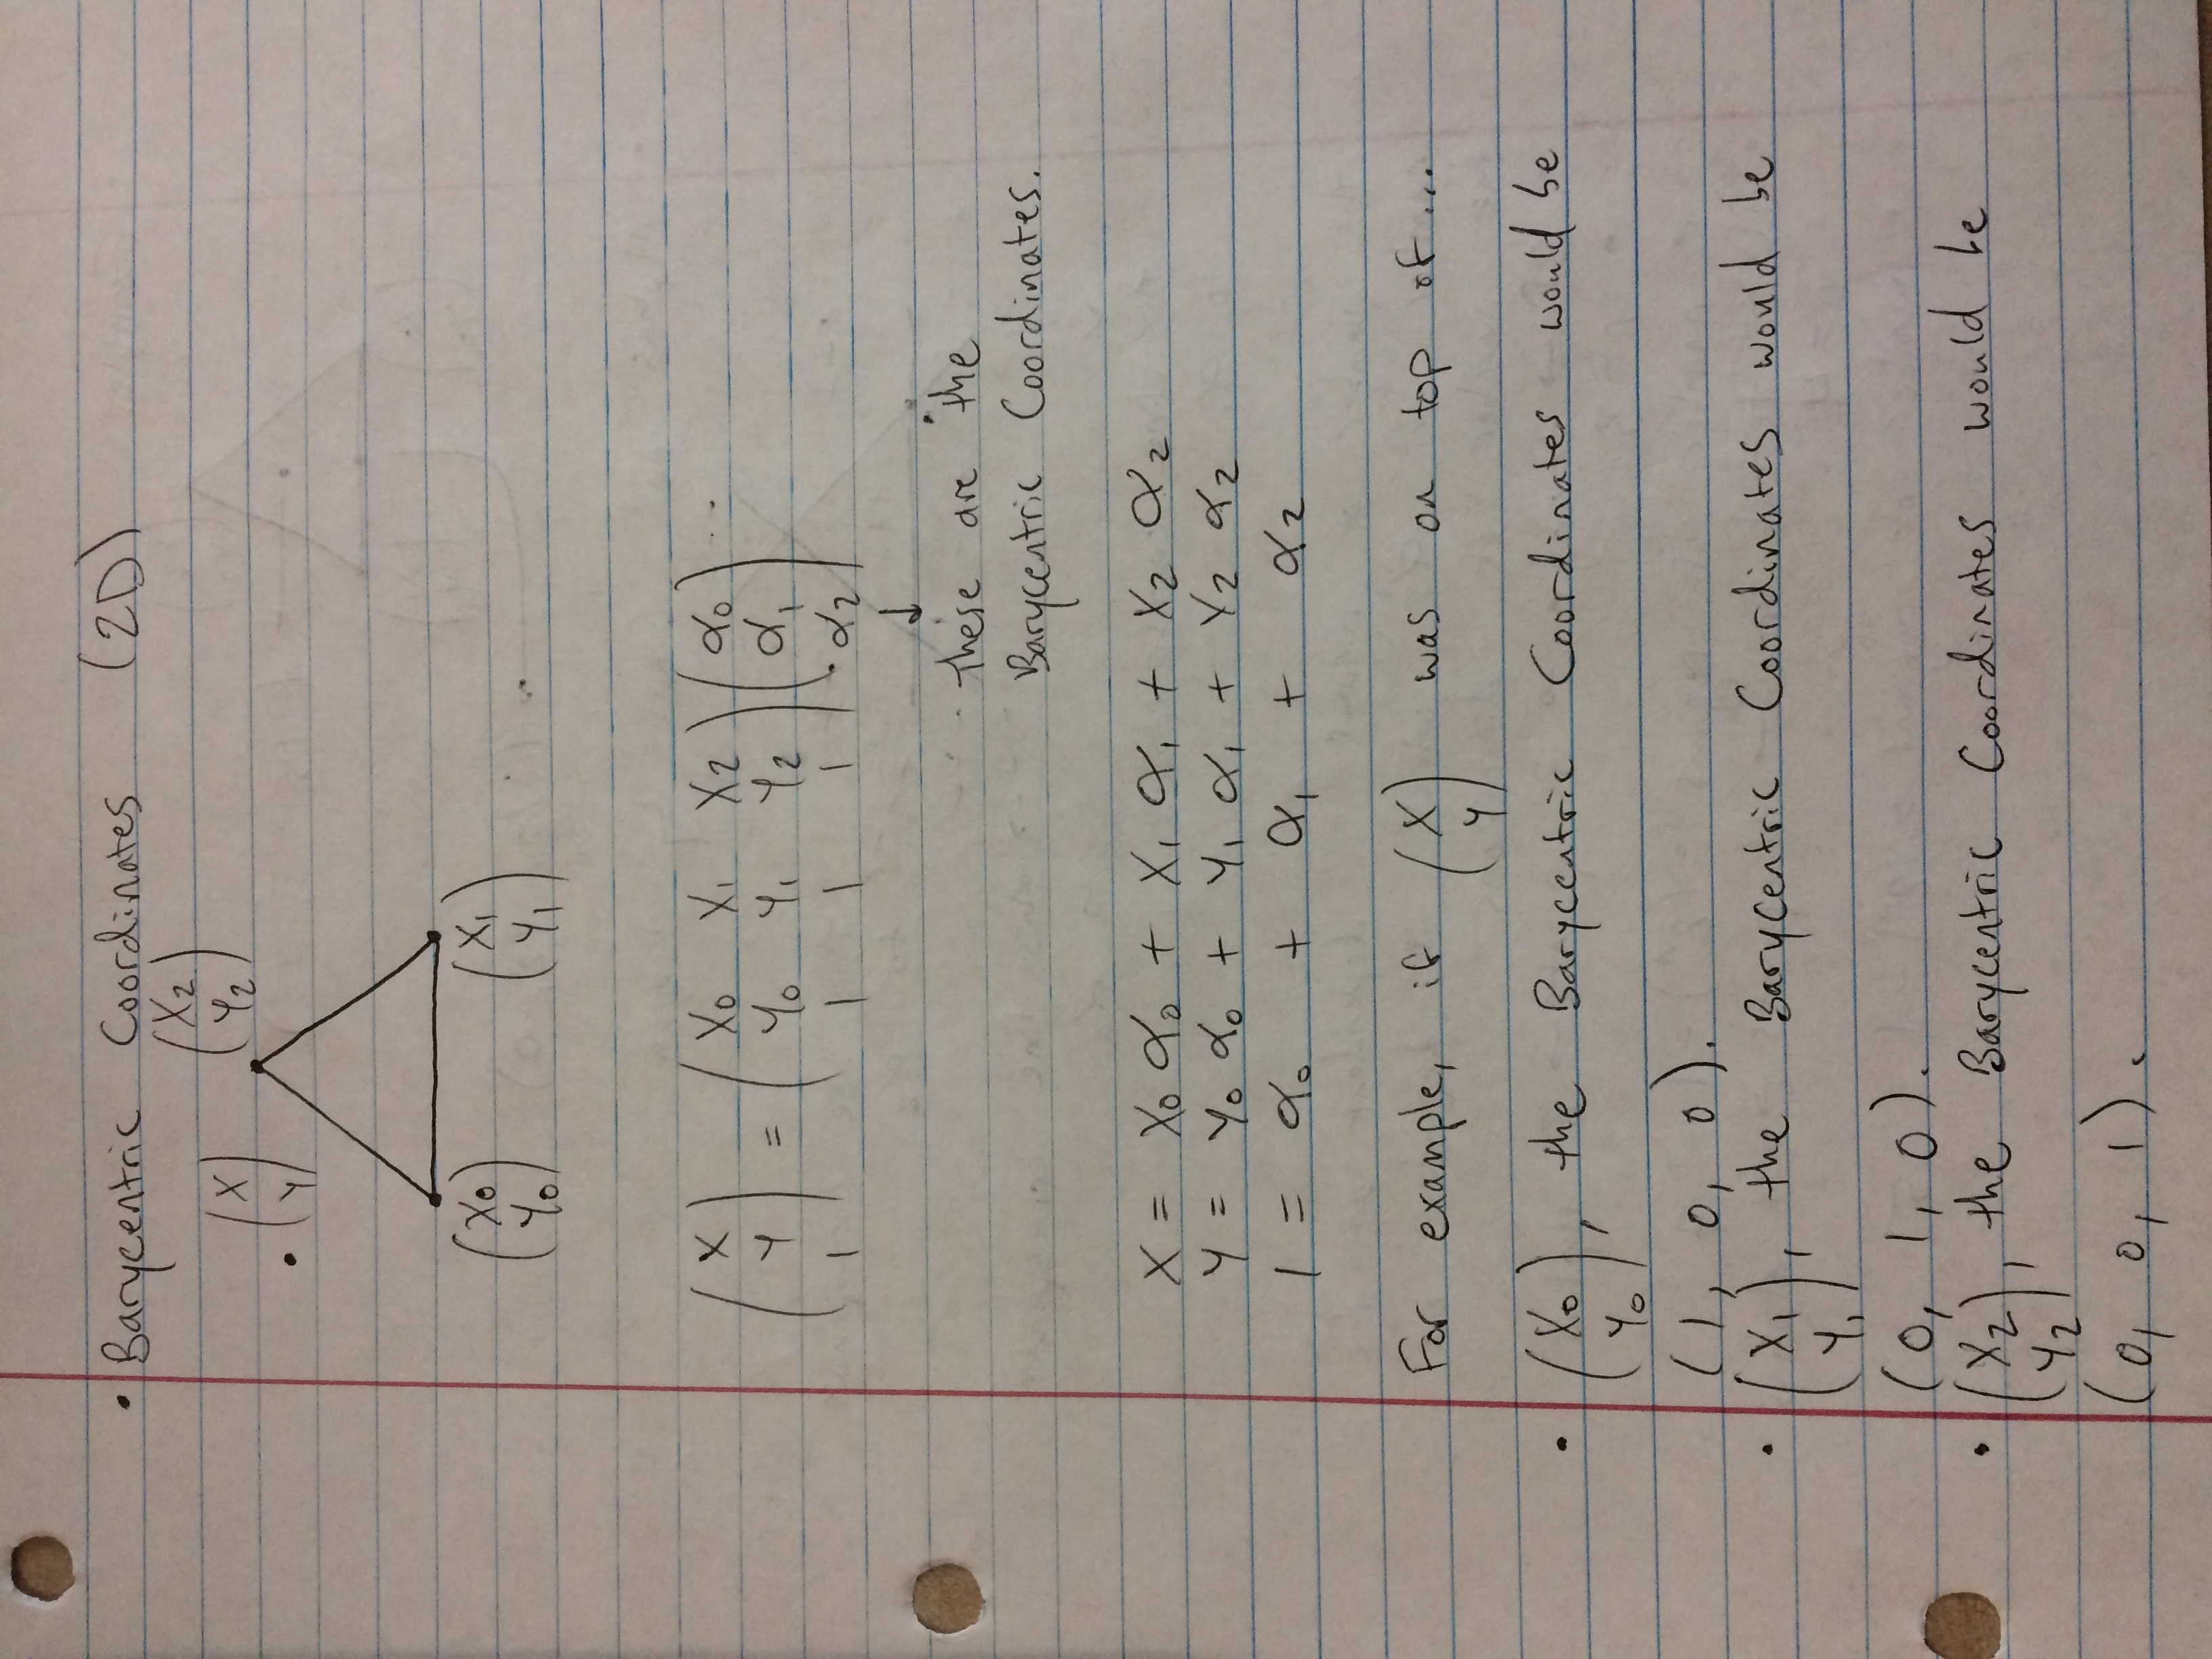 • Barycentric Coordinates (2D)
(x2
y2)
• (x
y)
(x0
y0) (x1
y1)
(x y 1) = (x0 x1 x2
y0 y1 y2
1 1 1) (α0 α1 α2)
↓
These are the
Barycentric Coordinates.
x = x0 α0 + x1 α1 + x2 α2
y = y0 α0 + y1 α1 + y2 α2
1 = α0 + α1 + α2
For example, if (x y) was on top of...
• (x0 y0), the Barycentric Coordinates would be
(1, 0, 0).
• (x1 y1), the Barycentric Coordinates would be
(0, 1, 0).
• (x2 y2), the Barycentric Coordinates would be
(0, 0, 1).